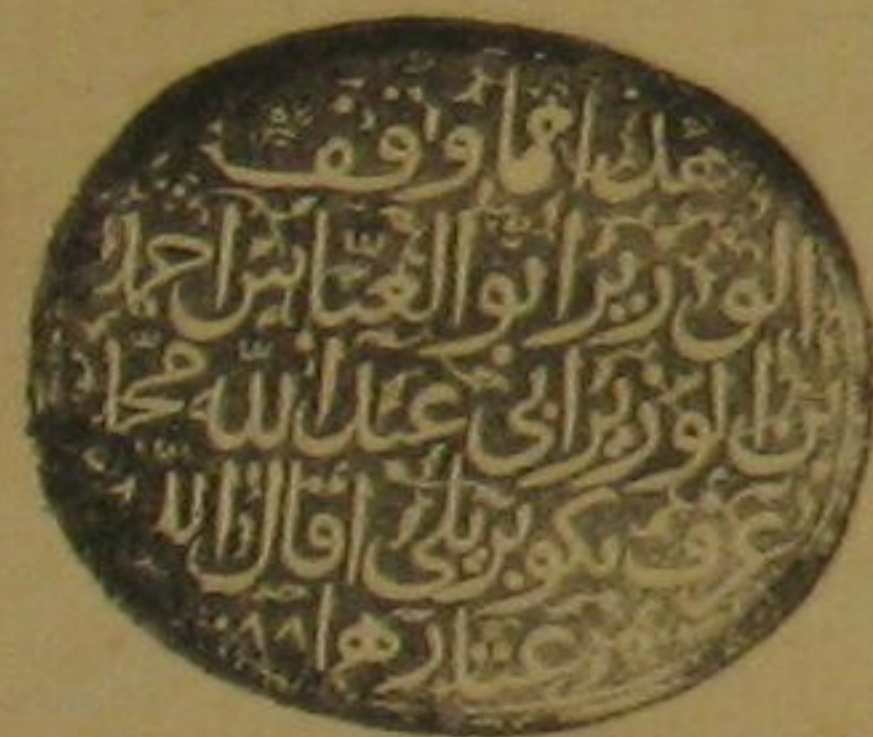 هذا مما وقف
الوزير ابو العباس احمد
بن الوزير ابي عبد الله محمد
عرف بكوبريلي اقال الله
عثارهما ٠٨٨